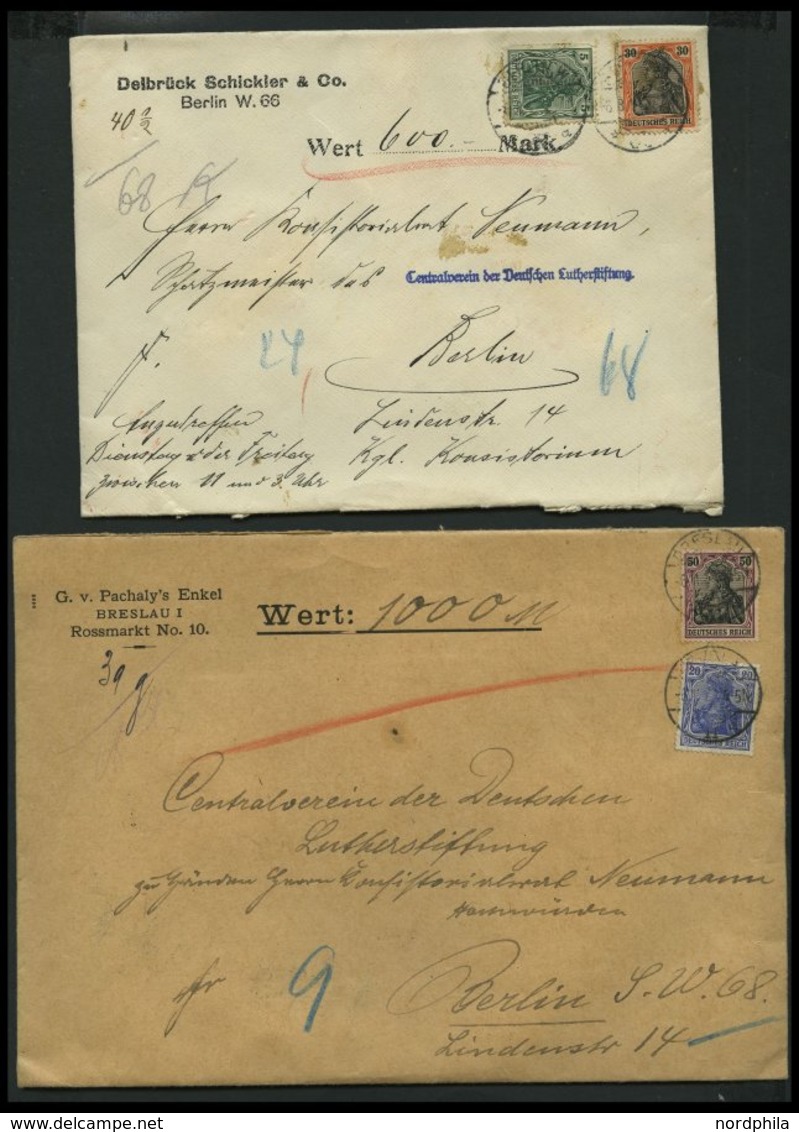 Delbrück Schickler & Co.
Berlin W. 66
40 ½
5 5
30 30
DEUTSCHES REICH
Wert 600.- Mark.
68
Herrn Konsistorialrat Neumann,
Schatzmeister des Centralverein der Deutschen Lutherstiftung.
24 Berlin 68
Anzutreffen Lindenstr. 14
Dienstag oder Freitag Kgl. Konsistorium
zwischen 11 und 3 Uhr
G. v. Pachaly's Enkel
BRESLAU I
Rossmarkt No. 10.
Wert: 1000 M
39 g
BRESLAU
50 50
DEUTSCHES REICH
20 20
DEUTSCHES REICH
Centralverein der Deutschen
Lutherstiftung
zu Händen Herrn Konsistorialrat Neumann
Hochwürden
9 Berlin S.W. 68.
Lindenstr 14
www.delcampe.net
nordphila